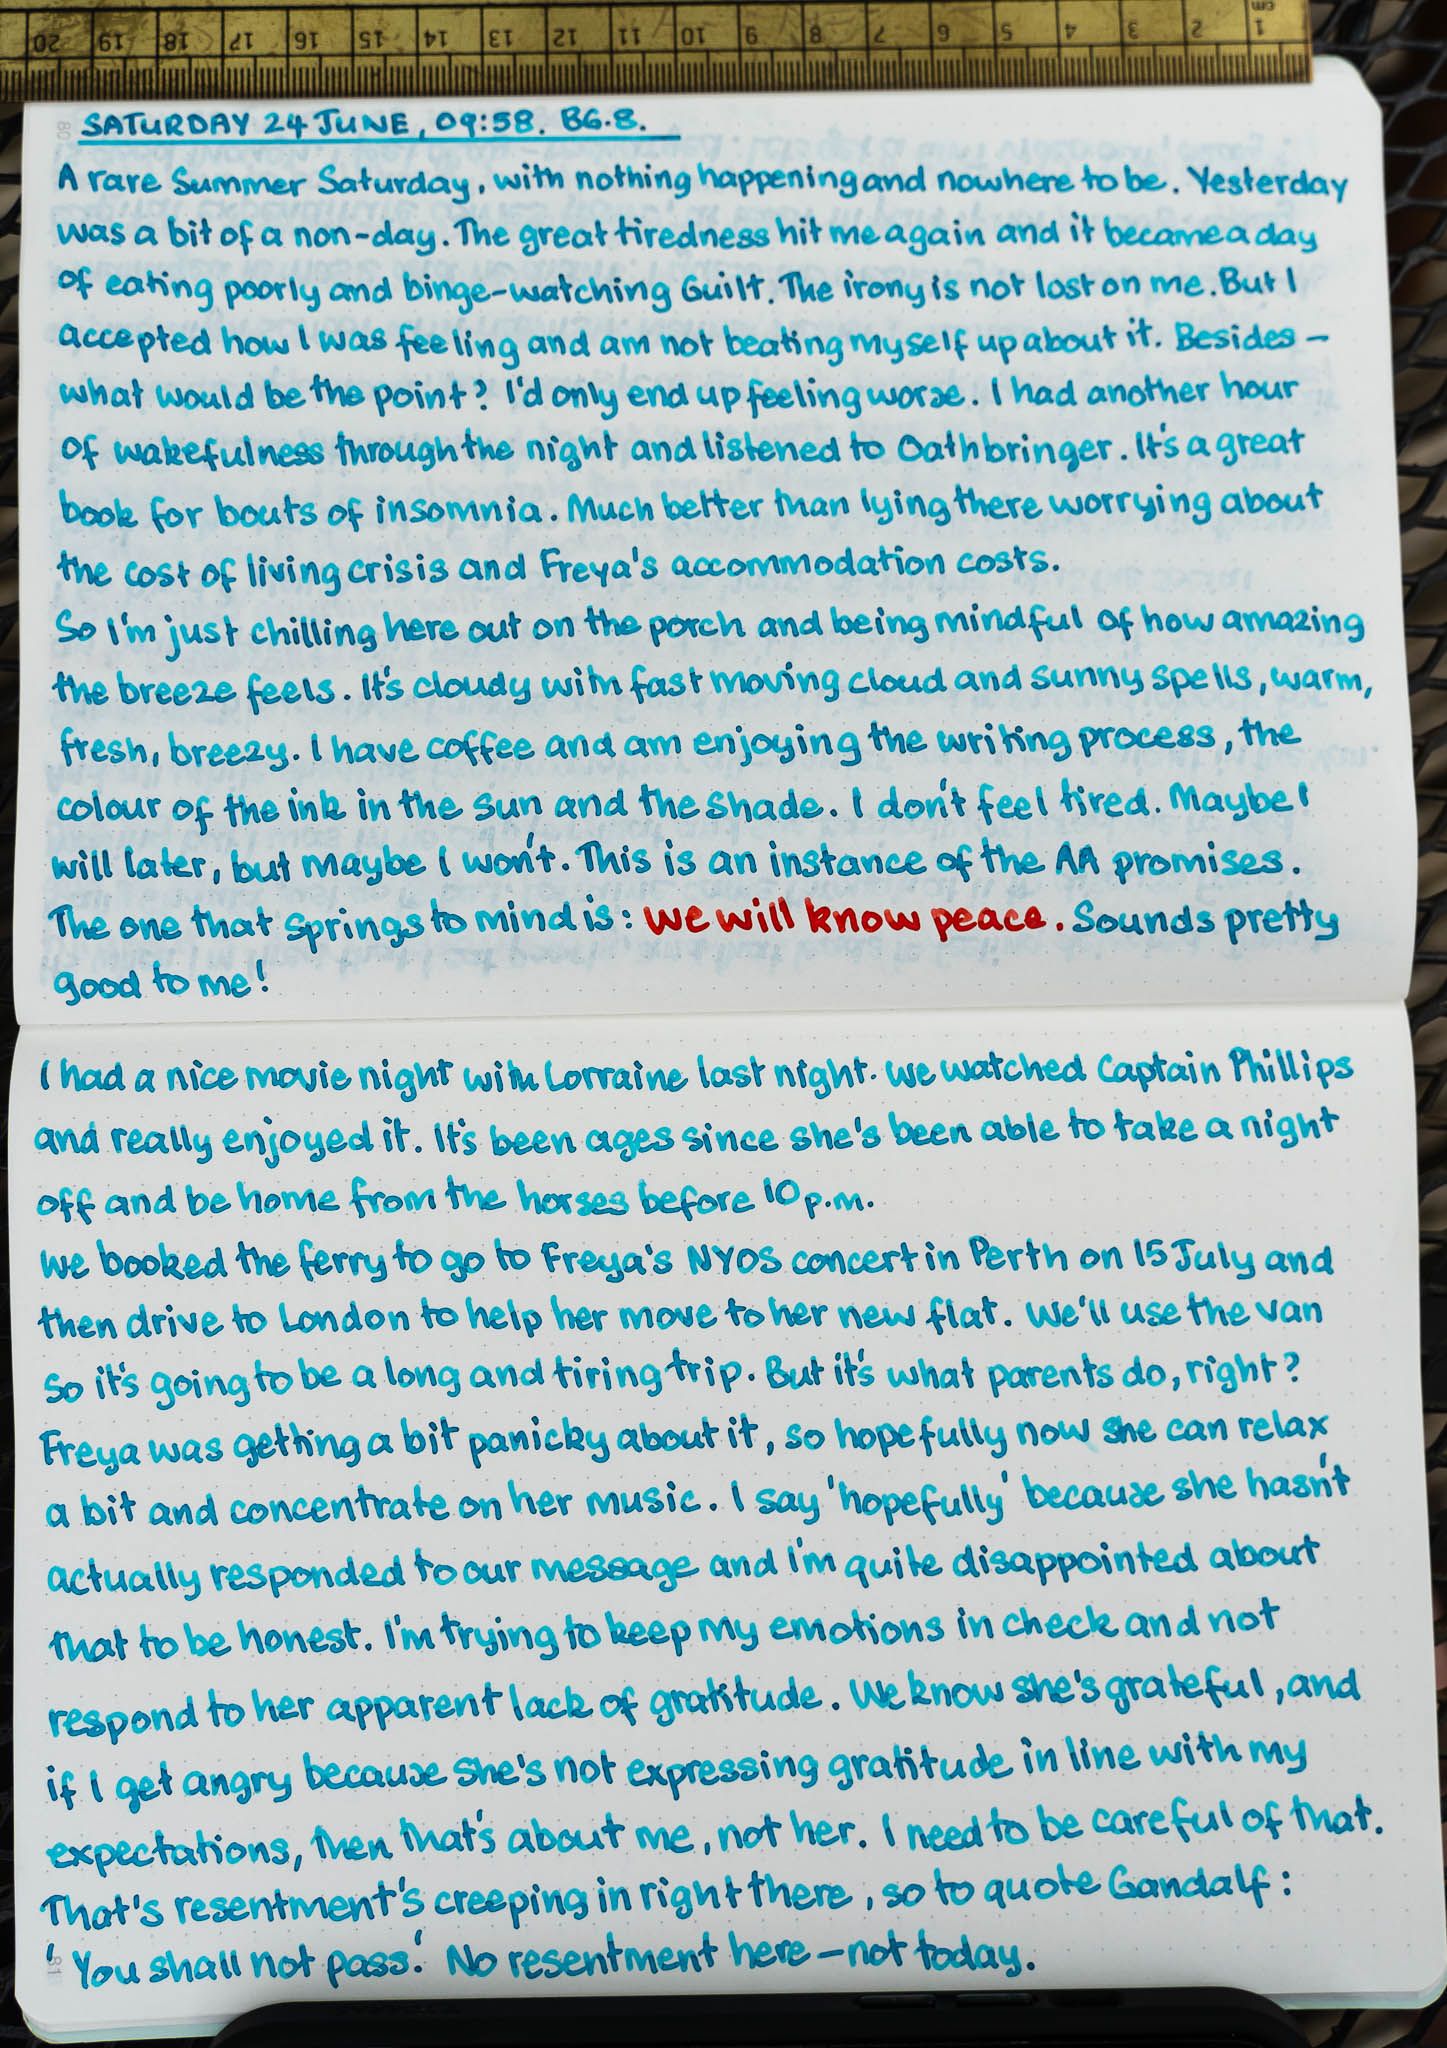 cm 1 2 3 4 5 6 7 8 9 10 11 12 13 14 15 16 17 18 19 20
80
SATURDAY 24 JUNE, 09:58. BG.8.
A rare Summer Saturday, with nothing happening and nowhere to be. Yesterday
was a bit of a non-day. The great tiredness hit me again and it became a day
of eating poorly and binge-watching Guilt. The irony is not lost on me. But I
accepted how I was feeling and am not beating myself up about it. Besides –
what would be the point? I'd only end up feeling worse. I had another hour
of wakefulness through the night and listened to Oathbringer. It's a great
book for bouts of insomnia. Much better than lying there worrying about
the cost of living crisis and Freya's accommodation costs.
So I'm just chilling here out on the porch and being mindful of how amazing
the breeze feels. It's cloudy with fast moving cloud and sunny spells, warm,
fresh, breezy. I have coffee and am enjoying the writing process, the
colour of the ink in the sun and the shade. I don't feel tired. Maybe I
will later, but maybe I won't. This is an instance of the AA promises.
The one that springs to mind is: we will know peace. Sounds pretty
good to me!
I had a nice movie night with Lorraine last night. We watched Captain Phillips
and really enjoyed it. It's been ages since she's been able to take a night
off and be home from the horses before 10 p.m.
We booked the ferry to go to Freya's NYOS concert in Perth on 15 July and
then drive to London to help her move to her new flat. We'll use the van
so it's going to be a long and tiring trip. But it's what parents do, right?
Freya was getting a bit panicky about it, so hopefully now she can relax
a bit and concentrate on her music. I say 'hopefully' because she hasn't
actually responded to our message and I'm quite disappointed about
that to be honest. I'm trying to keep my emotions in check and not
respond to her apparent lack of gratitude. We know she's grateful, and
if I get angry because she's not expressing gratitude in line with my
expectations, then that's about me, not her. I need to be careful of that.
That's resentment's creeping in right there, so to quote Gandalf:
'You shall not pass.' No resentment here – not today.
81